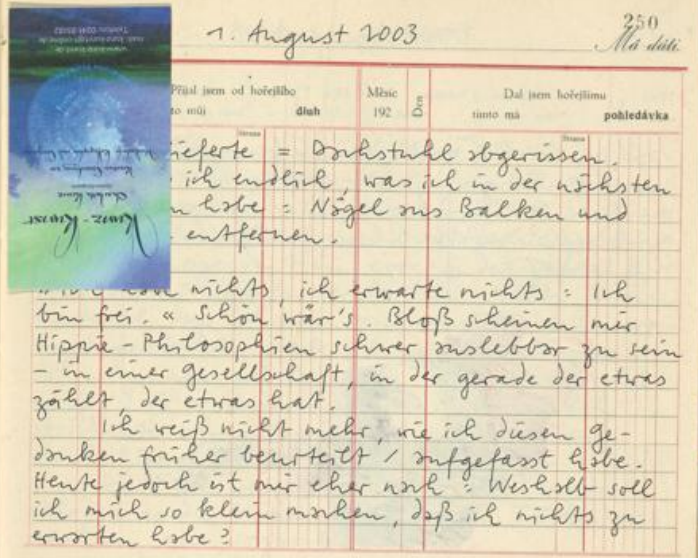 1. August 2003
250
Má dáti.
Přijal jsem od hořejšího
to můj dluh
Měsíc
192
Den
Dal jsem hořejšímu
tímto má pohledávka
Strana
Strana
ieferte = Dachstuhl abgerissen.
ich endlich, was ich in der nächsten
habe = Nägel aus Balken und
entfernen.
nichts, ich erwarte nichts = Ich
bin frei. « Schön wär's. Bloß scheinen mir
Hippie - Philosophien schwer auslebbar zu sein
- in einer Gesellschaft, in der gerade der etwas
zählt, der etwas hat.
Ich weiß nicht mehr, wie ich diesen Ge-
danken früher beurteilt / aufgefasst habe.
Heute jedoch ist mir eher nach = Weshalb soll
ich mich so klein machen, daß ich nichts zu
erwarten habe?
Kunz-Kunst